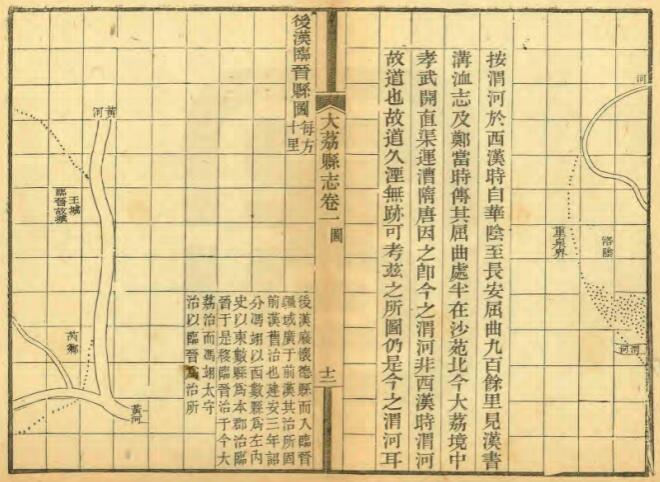 河
洛陰
重泉界
渭河
按渭河於西漢時自華陰至長安屈曲九百餘里見漢書
溝洫志及鄭當時傳其屈曲處半在沙苑北今大荔境中
孝武開直渠運漕隋唐因之卽今之渭河非西漢時渭河
故道也故道久湮無跡可考茲之所圖仍是今之渭河耳
大荔縣志卷一
圖
十二
後漢臨晉縣圖
每方
十里
後漢廢懷德縣而入臨晉
疆域廣于前漢其治所固
前漢舊治也建安三年詔
分馮翊以西數縣爲左內
史以東數縣爲本郡治臨
晉于是移臨晉治于今大
荔治而馮翊太守
治以臨晉爲治所
黃河
王城
臨晉故城
芮鄉
黃河